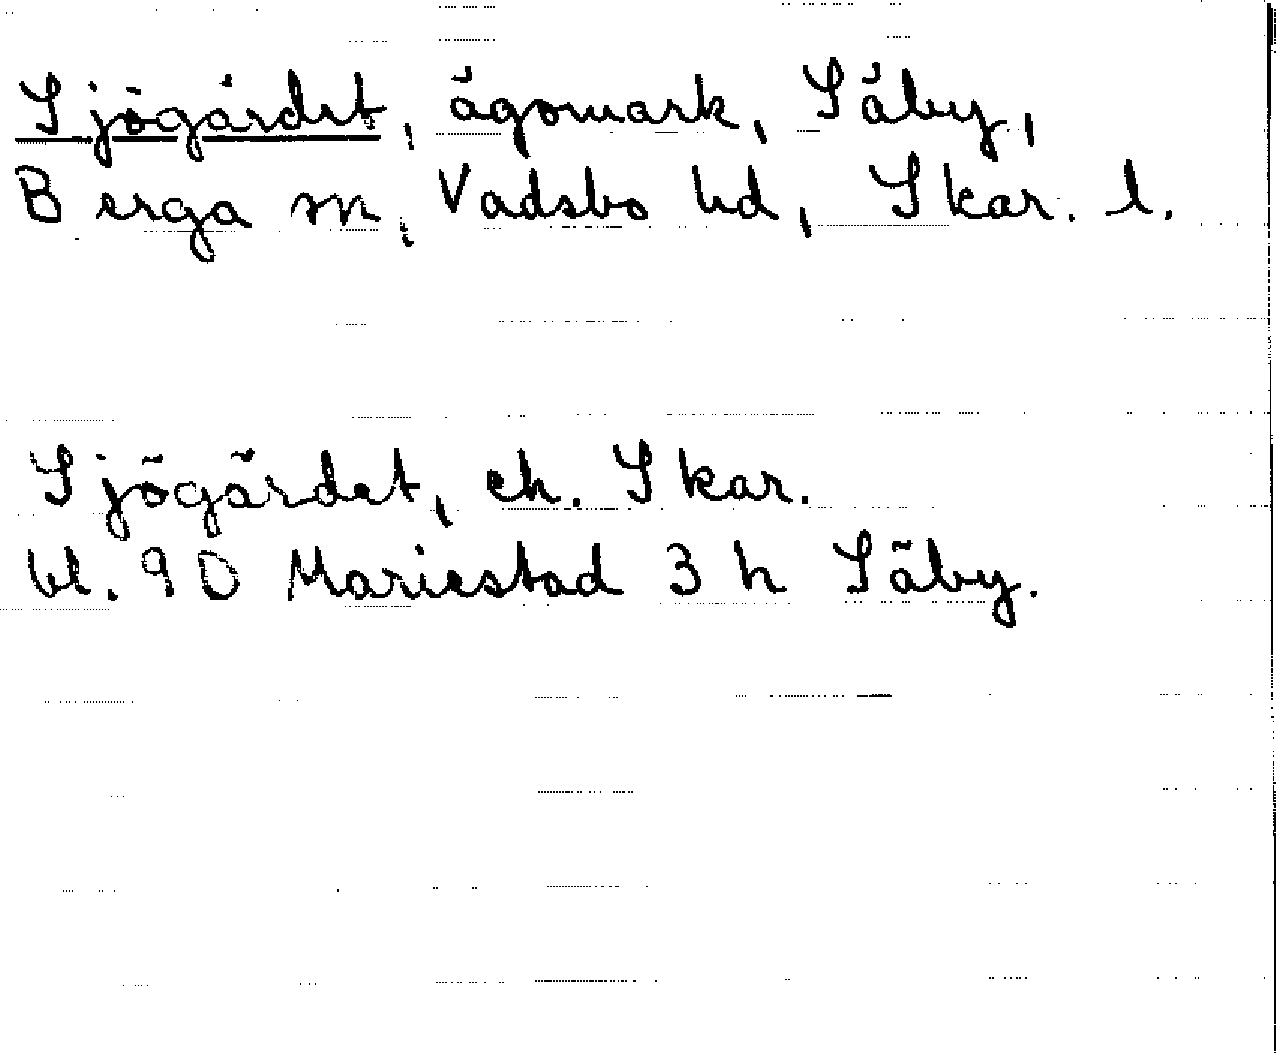 Sjögärdet, ägomark, Säby,
Berga sn, Vadsbo hd, Skar. l.
Sjögärdet, ek. Skar.
bl. 90 Mariestad 3 h Säby.